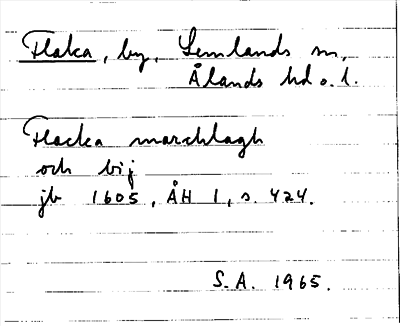 Flaka, by, Lemlands sn,
Ålands hd o. l.
Flacka marchlagh
och bij
jb 1605, ÅH 1, s. 424.
S.A. 1965.